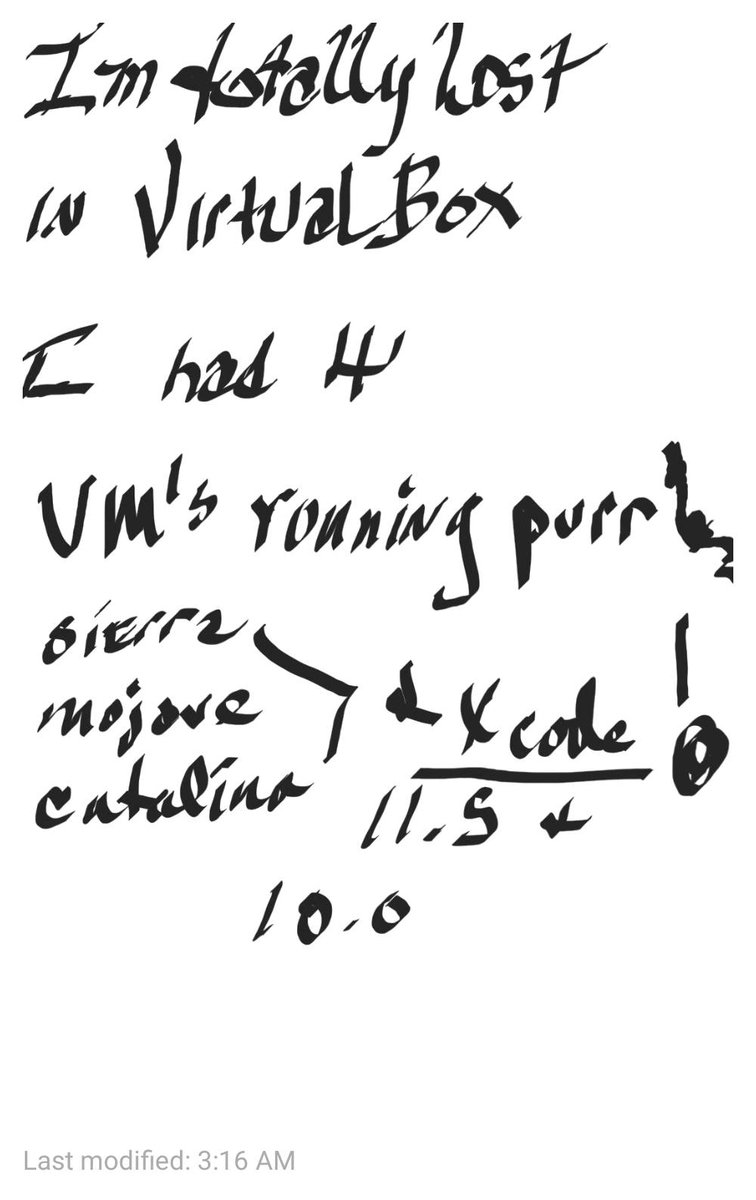 I'm totally lost
in VirtualBox
I had 4
VM's running purr
sierra
mojave
catalina
& Xcode
11.5 &
10.0
!
Last modified: 3:16 AM